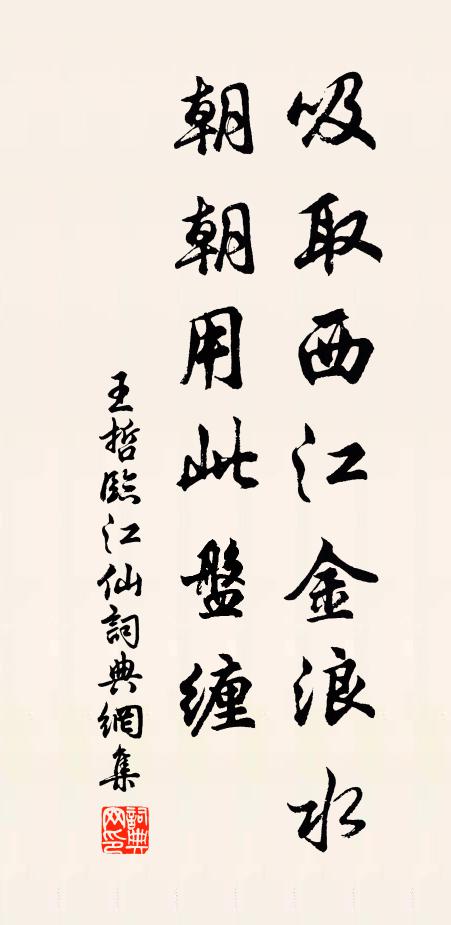 吸取西江金浪水
朝朝用此盤纏
王哲臨江仙詞典網集
詞典网印